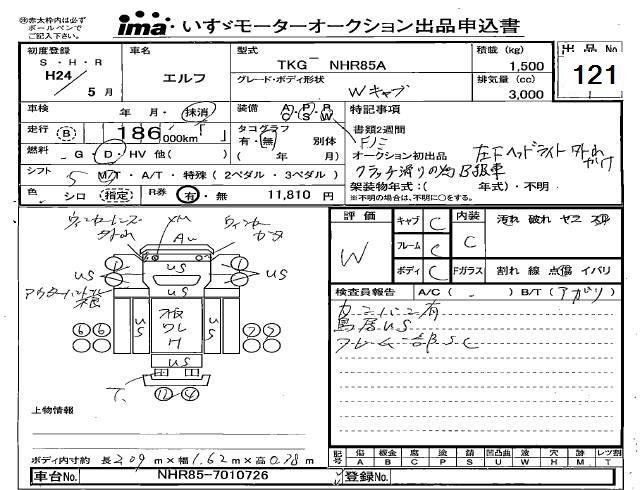 ㊟赤太枠内は必ず
ボールペンで
ご記入下さい。
ima いすゞモーターオークション出品申込書
初度登録 車名 型式 積載 (kg) 出品No
S・H・R
H24 5月 エルフ TKG NHR85A 1,500
グレード・ボディ形状 排気量 (cc)
Wキャブ 3,000
121
車検 年 月・抹消 装備 A/C P/S P/W 特記事項
走行 B 186 000km タコグラフ 書類2週間
有・無 別体 Fノミ
燃料 G・D・HV 他( ) ( 年 月) オークション初出品 左下ヘッドライト外れかけ
シフト 5 M/T・A/T・特殊(2ペダル・3ペダル) クラッチ滑りの為B扱車
架装物年式:( 年式)・不明
※不明の場合は、不明に○をする。
色 シロ 指定 R券 有・無 11,810 円
評価 キャブ C 内装 汚れ 破れ ヤニ スレ
W フレーム C C
ボディ C Fガラス 割れ 線 点傷 イバリ
検査員報告 A/C( - ) B/T(アガリ)
カンバン有
鳥居US
フレーム一部S.C
US
US
US
US
US
US
上物情報
ボディ内寸約 長2.09m×幅1.62m×高0.38m
記号 傷 鈑金 腐 塗 錆 凹凸曲 W 穴 跡 レツ割
A B C P S U W H M T
車台No. NHR85-7010726 登録No.